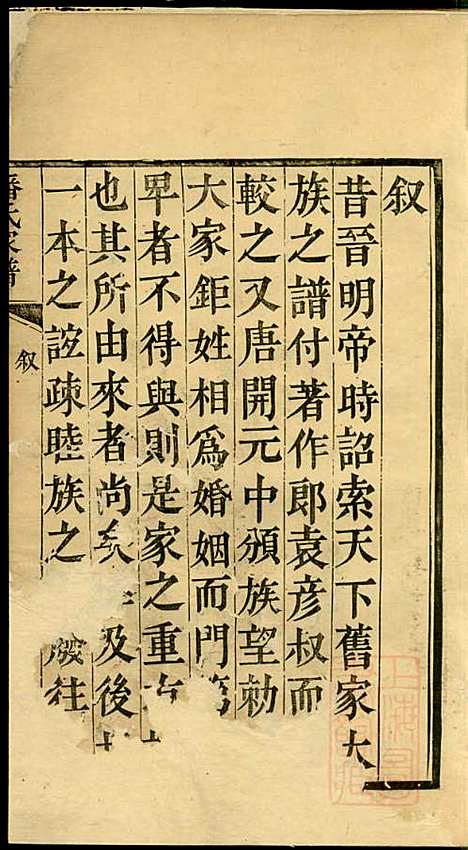 叙
昔晉明帝時詔索天下舊家大
族之譜付著作郎袁彥叔而
較之又唐開元中頒族望勅
大家鉅姓相爲婚姻而門
卑者不得與則是家之重
也其所由來者尚矣 及後
一本之誼疎睦族之 廢往
潘氏家譜
叙